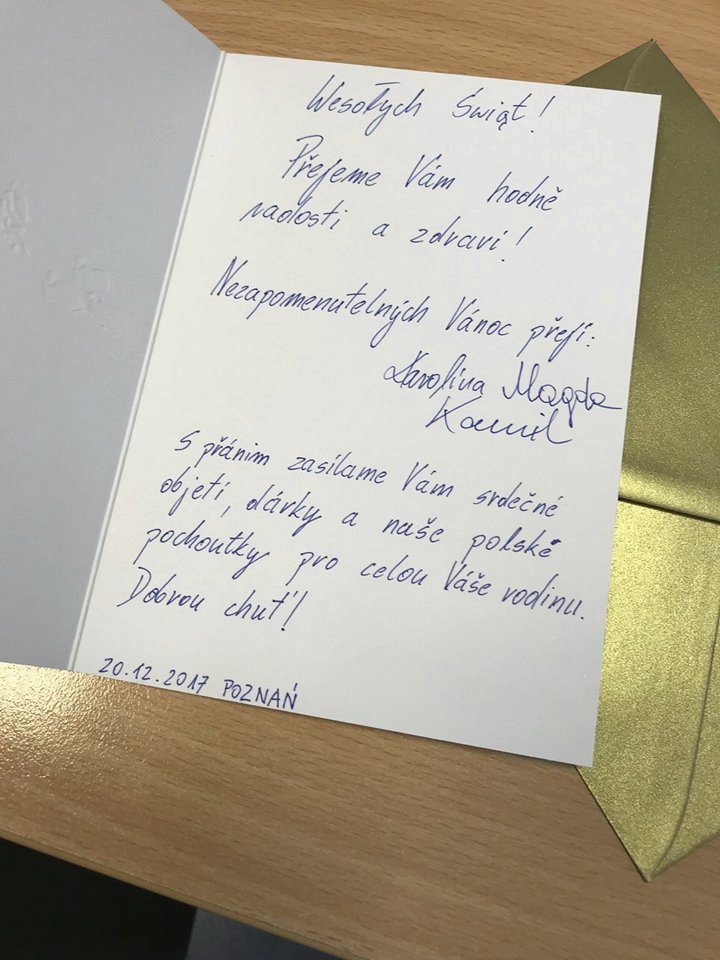 Wesołych Świąt!
Přejeme Vám hodně
radosti a zdraví!
Nezapomenutelných Vánoc přejí:
Karolina Magda
Kamil
S přáním zasílame Vám srdečné
objetí, dárky a naše polské
pochoutky pro celou Váše rodinu.
Dobrou chuť!
20.12.2017 POZNAŃ